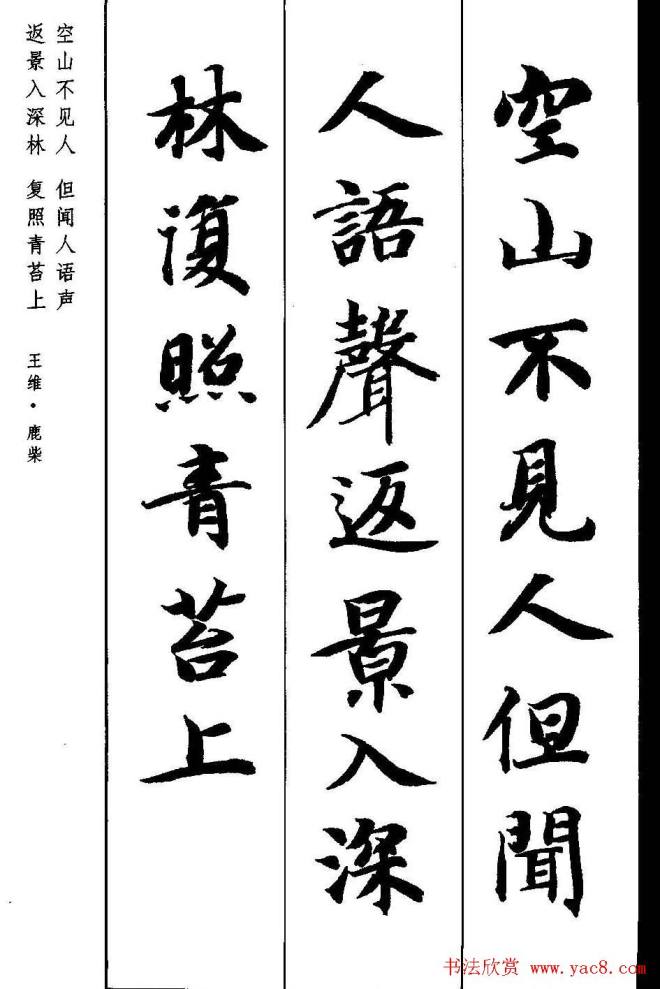 空山不見人但聞
人語聲返景入深
林復照青苔上
空山不见人 但闻人语声
返景入深林 复照青苔上
王维·鹿柴
书法欣赏 www.yac8.com